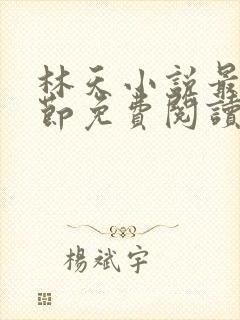 林天小説最
節免費閱讀
楊斌宇